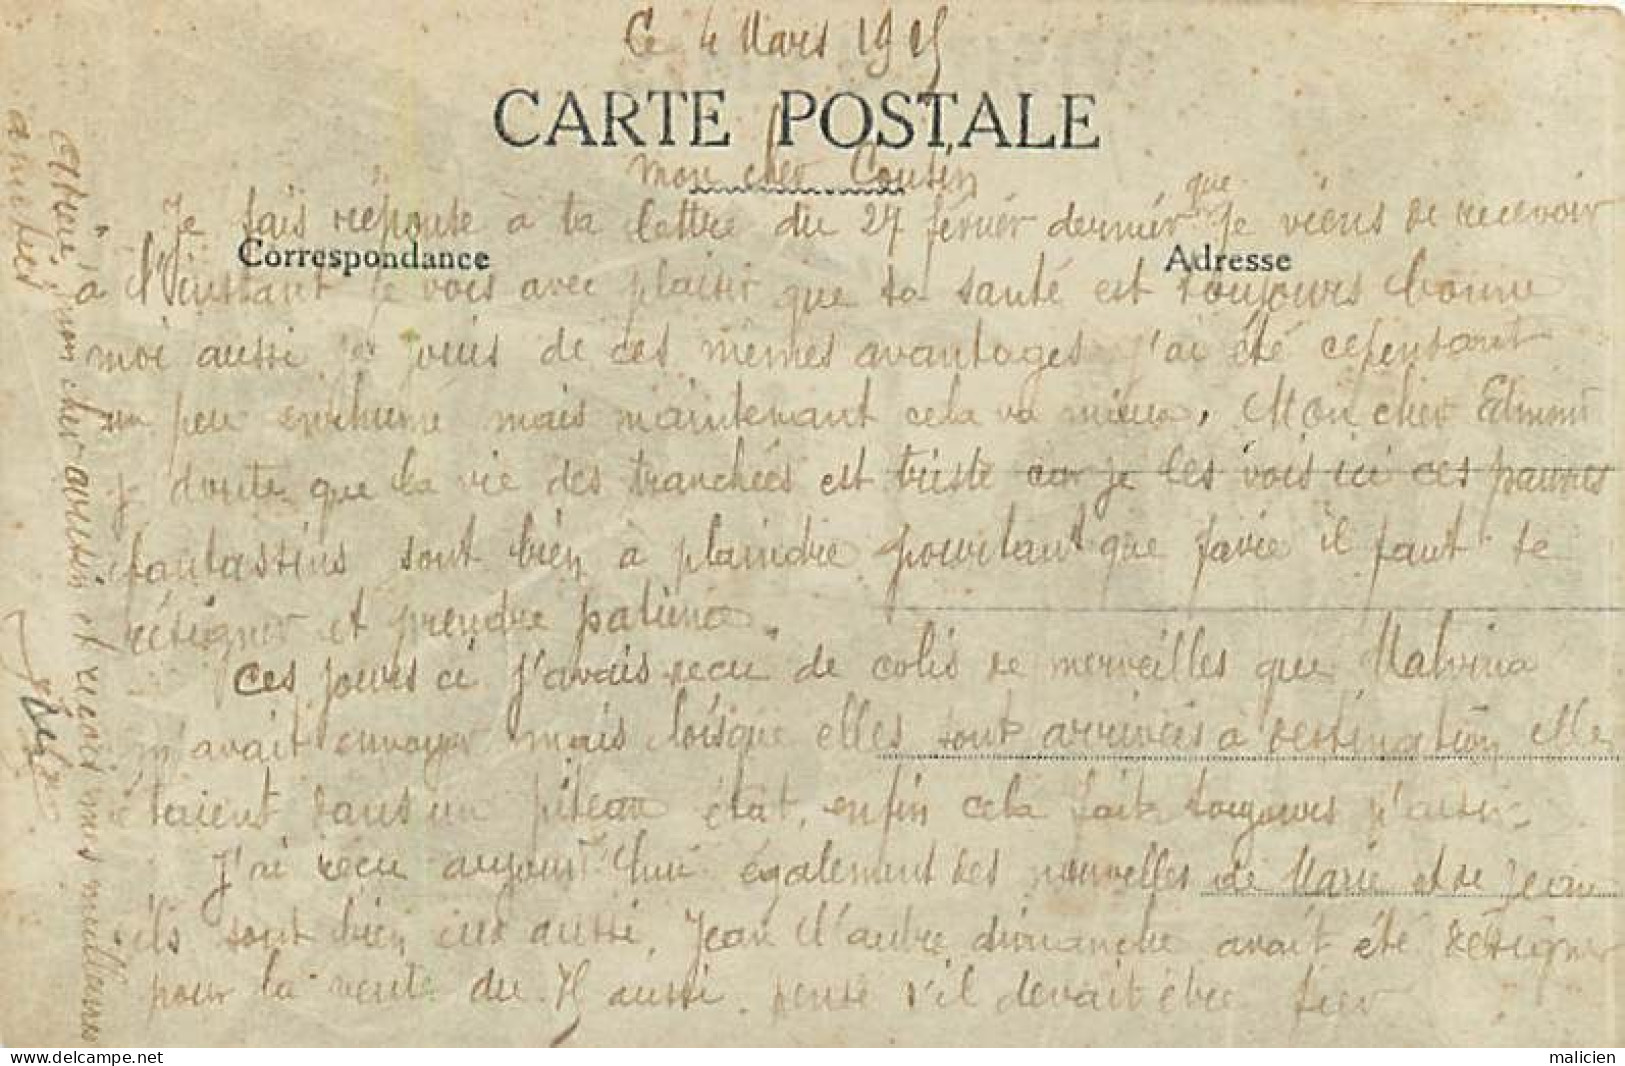 Ce 4 Mars 1915
CARTE POSTALE
mon cher Cousin
que
Je fais réponse à ta lettre du 27 février dernier Je viens de recevoir
Correspondance Adresse
à l'instant je vois avec plaisir que ta santé est toujours bonne
moi aussi je jouis de ces mêmes avantages j'ai été cependant
un peu enrhumé mais maintenant cela va mieux. Mon cher Edmond
je doute que la vie des tranchées est triste car je les vois ici ces pauvres
fantassins sont bien à plaindre pourtant que faire il faut se
résigner et prendre patience.
Ces jours ci j'avais reçu de colis de merveilles que Malvina
m'avait envoyer mais lorsque elles sont arrivées à destination elle
étaient dans un piteau état, enfin cela fait toujours
J'ai reçu aujourd'hui également des nouvelles de Marie et de Jean
ils sont bien eux aussi, Jean l'autre dimanche avait été désigner
pour la vente du 75 aussi. pense s'il devait être fier
Adieu mon cher cousin et reçois mes meilleures
amitiés
malicien
delcampe.net